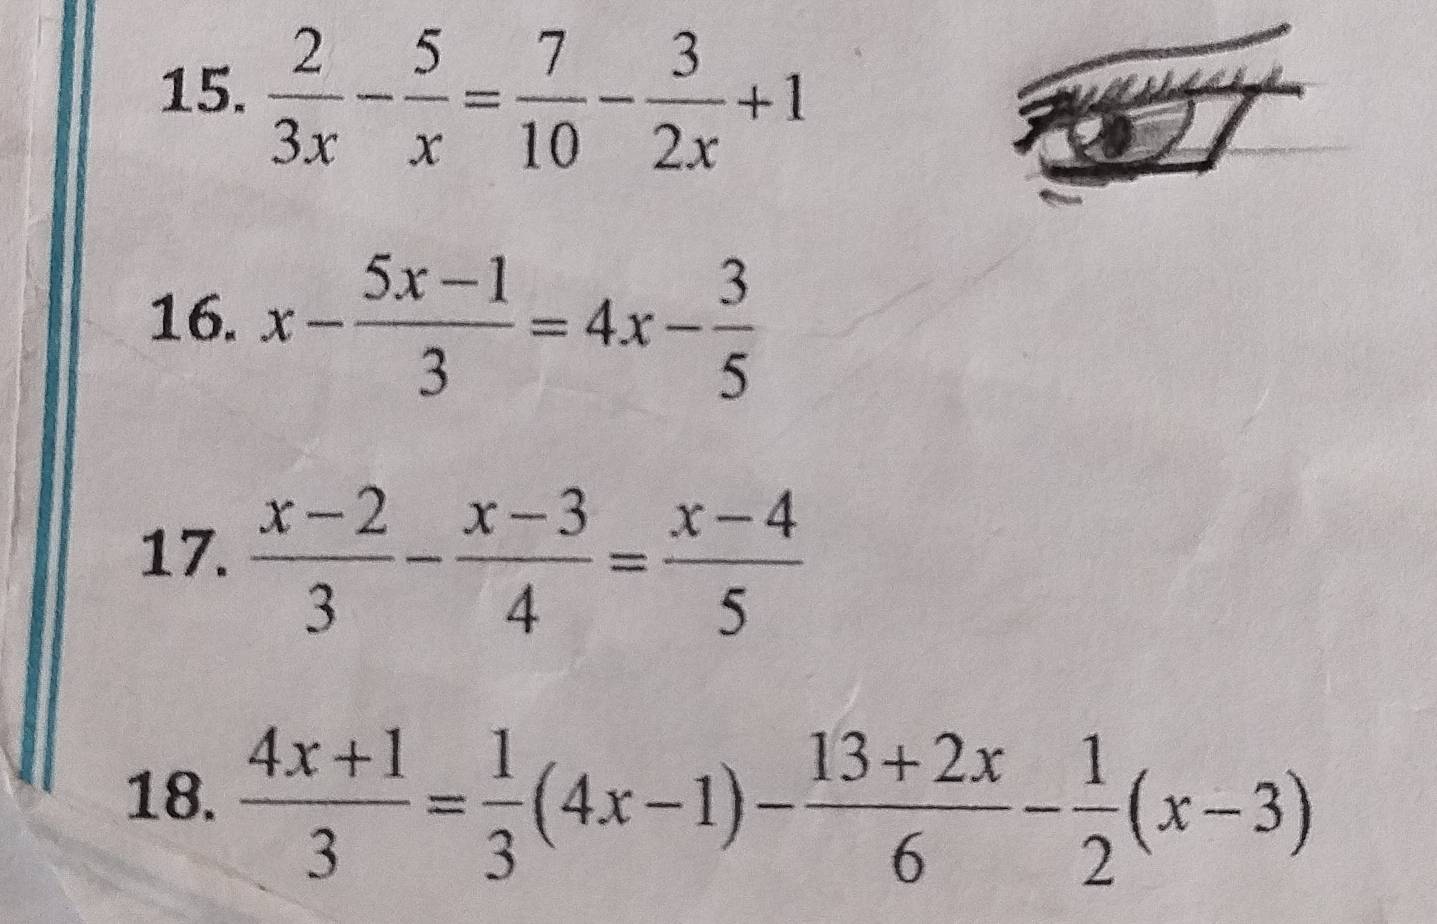 15. \frac{2}{3x} - \frac{5}{x} = \frac{7}{10} - \frac{3}{2x} + 1
16. x - \frac{5x-1}{3} = 4x - \frac{3}{5}
17. \frac{x-2}{3} - \frac{x-3}{4} = \frac{x-4}{5}
18. \frac{4x+1}{3} = \frac{1}{3}(4x-1) - \frac{13+2x}{6} - \frac{1}{2}(x-3)